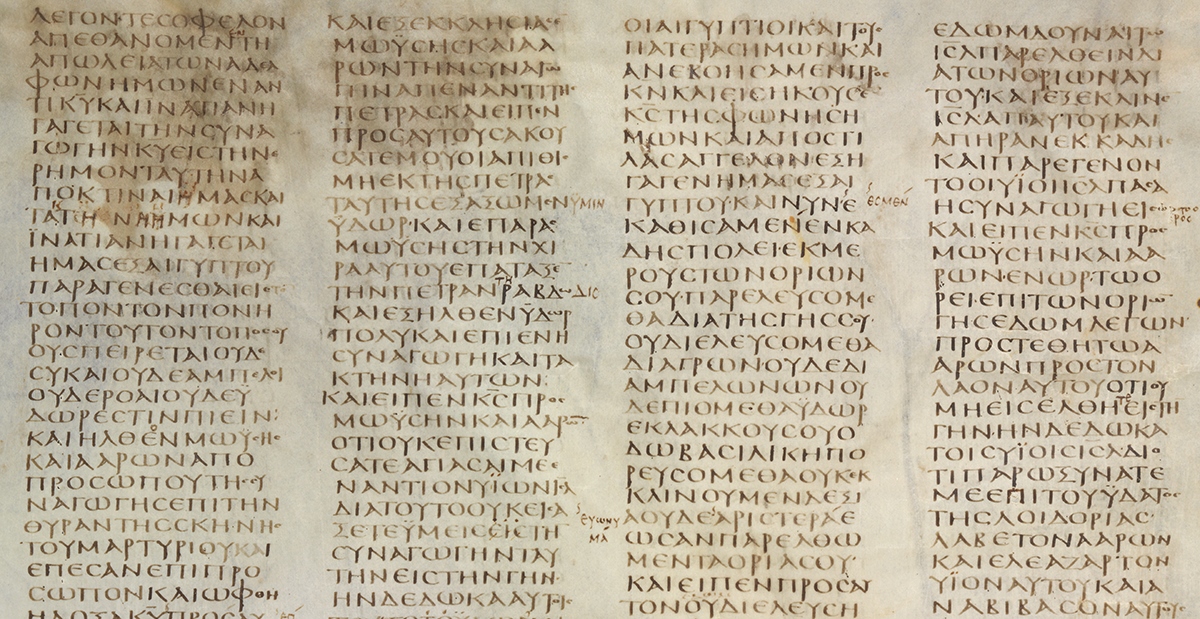 ΛΕΓΟΝΤΕΣΟΦΕΛΟΝ
ΑΠΕΘΑΝΟΜΕΝΤΗ
ΑΠΩΛΕΙΑΤΩΝΑΔΕΛ
ΦΩΝΗΜΩΝΕΝΑΝ
ΤΙΚΥΚΑΙΙΝΑΤΙΑΝΗ
ΓΑΓΕΤΑΙΤΗΝΣΥΝΑ
ΓΩΓΗΝΚΥΕΙΣΤΗΝΕ
ΡΗΜΟΝΤΑΥΤΗΝΑ
ΠΟΚΤΙΝΑΙΗΜΑΣΚΑΙ
ΗΜΩΝΚΑΙ
ΪΝΑΤΙΑΝΗΓΑΓΕΤΑΙ
ΗΜΑΣΕΞΑΙΓΥΠΤΟΥ
ΠΑΡΑΓΕΝΕΣΘΑΙΕΙΣ
ΤΟΠΟΝΤΟΝΠΟΝΗ
ΡΟΝΤΟΥΤΟΝΤΟΠΟΣΟΥ
ΟΥΣΠΕΙΡΕΤΑΙΟΥΔΕ
ΣΥΚΑΙΟΥΔΕΑΜΠΕΛΟΙ
ΟΥΔΕΡΟΑΙΟΥΔΕΥ
ΔΩΡΕΣΤΙΝΠΙΕΙΝ:
ΚΑΙΗΛΘΕΝΜΩΫΣΗΣ
ΚΑΙΑΑΡΩΝΑΠΟ
ΠΡΟΣΩΠΟΥΤΗΣΣΥ
ΝΑΓΩΓΗΣΕΠΙΤΗΝ
ΘΥΡΑΝΤΗΣΣΚΗΝΗΣ
ΤΟΥΜΑΡΤΥΡΙΟΥΚΑΙ
ΕΠΕΣΑΝΕΠΙΠΡΟ
ΣΩΠΟΝΚΑΙΩΦΘΗ
ΗΔΟΞΑΚΥΠΡΟΣΑΥ
ΚΑΙΕΞΕΚΚΛΗΣΙΑΣΕ
ΜΩΫΣΗΣΚΑΙΑΑ
ΡΩΝΤΗΝΣΥΝΑΓΩ
ΓΗΝΑΠΕΝΑΝΤΙΤΗΣ
ΠΕΤΡΑΣΚΑΙΕΙΠΕΝ
ΠΡΟΣΑΥΤΟΥΣΑΚΟΥ
ΣΑΤΕΜΟΥΟΙΑΠΙΘΙΣ
ΜΗΕΚΤΗΣΠΕΤΡΑΣ
ΤΑΥΤΗΣΕΞΑΞΩΜΕΝΫΜΙΝ
ΫΔΩΡ·ΚΑΙΕΠΑΡΑΣ
ΜΩΫΣΗΣΤΗΝΧΙ
ΡΑΑΥΤΟΥΕΠΑΤΑΞΕ
ΤΗΝΠΕΤΡΑΝΤΗΡΑΒΔΩΔΙΣ
ΚΑΙΕΞΗΛΘΕΝΫΔΩΡ
ΠΟΛΥΚΑΙΕΠΙΕΝΗ
ΣΥΝΑΓΩΓΗΚΑΙΤΑ
ΚΤΗΝΗΑΥΤΩΝ:
ΚΑΙΕΙΠΕΝΚΣΠΡΟΣ
ΜΩΫΣΗΝΚΑΙΑΑΡΩ
ΟΤΙΟΥΚΕΠΙΣΤΕΥ
ΣΑΤΕΑΓΙΑΣΑΙΜΕΕ
ΝΑΝΤΙΟΝΥΪΩΝΙΛ
ΔΙΑΤΟΥΤΟΟΥΚΕΙΣΑ
ΞΕΤΕΫΜΕΙΣΕΙΣΤΗ
ΣΥΝΑΓΩΓΗΝΤΑΥ
ΤΗΝΕΙΣΤΗΝΓΗΝ
ΗΝΔΕΔΩΚΑΑΥΤΟΙΣ
ΟΙΑΙΓΥΠΤΙΟΙΚΑΙΤΟΥΣ
ΠΑΤΕΡΑΣΗΜΩΝΚΑΙ
ΑΝΕΒΟΗΣΑΜΕΝΠΡΟΣ
ΚΝΚΑΙΕΙΣΗΚΟΥΣΕ
ΚΣΤΗΣΦΩΝΗΣΗ
ΜΩΝΚΑΙΑΠΟΣΤΙ
ΛΑΣΑΓΓΕΛΟΝΕΞΗ
ΓΑΓΕΝΗΜΑΣΕΞΑΙ
ΓΥΠΤΟΥΚΑΙΝΥΝΕ ΕΣΜΕΝ
ΚΑΘΙΣΑΜΕΝΕΝΚΑ
ΔΗΣΠΟΛΕΙΕΚΜΕ
ΡΟΥΣΤΩΝΟΡΙΩΝ
ΣΟΥ·ΠΑΡΕΛΕΥΣΟΜΕ
ΘΑΔΙΑΤΗΣΓΗΣΣΟΥ·
ΟΥΔΙΕΛΕΥΣΟΜΕΘΑ
ΔΙΑΓΡΩΝΟΥΔΕΔΙ
ΑΜΠΕΛΩΝΩΝΟΥ
ΔΕΠΙΟΜΕΘΑΫΔΩΡ
ΕΚΛΑΚΚΟΥΣΟΥΟ
ΔΩΒΑΣΙΛΙΚΗΠΟ
ΡΕΥΣΟΜΕΘΑΟΥΚΕΚ
ΚΛΙΝΟΥΜΕΝΔΕΞΙ
ΕΥΩΝΥΜΑ
ΑΟΥΔΕΑΡΙΣΤΕΡΑΕ
ΩΣΑΝΠΑΡΕΛΘΩ
ΜΕΝΤΑΟΡΙΑΣΟΥ
ΚΑΙΕΙΠΕΝΠΡΟΣΑΥ
ΤΟΝΟΥΔΙΕΛΕΥΣΗ
ΕΔΩΜΔΟΥΝΑΙΤΩ
ΙΣΛΠΑΡΕΛΘΕΙΝΔΙ
ΑΤΩΝΟΡΙΩΝΑΥ
ΤΟΥ·ΚΑΙΕΞΕΚΛΙΝΕ
ΙΣΛΑΠΑΥΤΟΥΚΑΙ
ΑΠΗΡΑΝΕΚΚΑΔΗΣ
ΚΑΙΠΑΡΕΓΕΝΟΝ
ΤΟΟΙΥΪΟΙΙΣΛΠΑΣΑ
ΗΣΥΝΑΓΩΓΗΕΙΣΩΡΤΟΟΡΟΣ
ΚΑΙΕΙΠΕΝΚΣΠΡΟΣ
ΜΩΫΣΗΝΚΑΙΑΑ
ΡΩΝ·ΕΝΩΡ·ΤΩΟ
ΡΕΙ·ΕΠΙΤΩΝΟΡΙΩ
ΓΗΣΕΔΩΜΛΕΓΩΝ·
ΠΡΟΣΤΕΘΗΤΩΑ
ΑΡΩΝΠΡΟΣΤΟΝ
ΛΑΟΝΑΥΤΟΥΟΤΙΟΥ
ΜΗΕΙΣΕΛΘΗΤΕΕΙΣΤΗ
ΓΗΝ·ΗΝΔΕΔΩΚΑ
ΤΟΙΣΥΪΟΙΣΙΣΛΔΙΟ
ΤΙΠΑΡΩΞΥΝΑΤΕ
ΜΕΕΠΙΤΟΥΫΔΑΤΟΣ
ΤΗΣΛΟΙΔΟΡΙΑΣ·
ΛΑΒΕΤΟΝΑΑΡΩΝ
ΚΑΙΕΛΕΑΖΑΡΤΟΝ
ΥΪΟΝΑΥΤΟΥΚΑΙΑ
ΝΑΒΙΒΑΣΟΝΑΥΤΟΥΣ